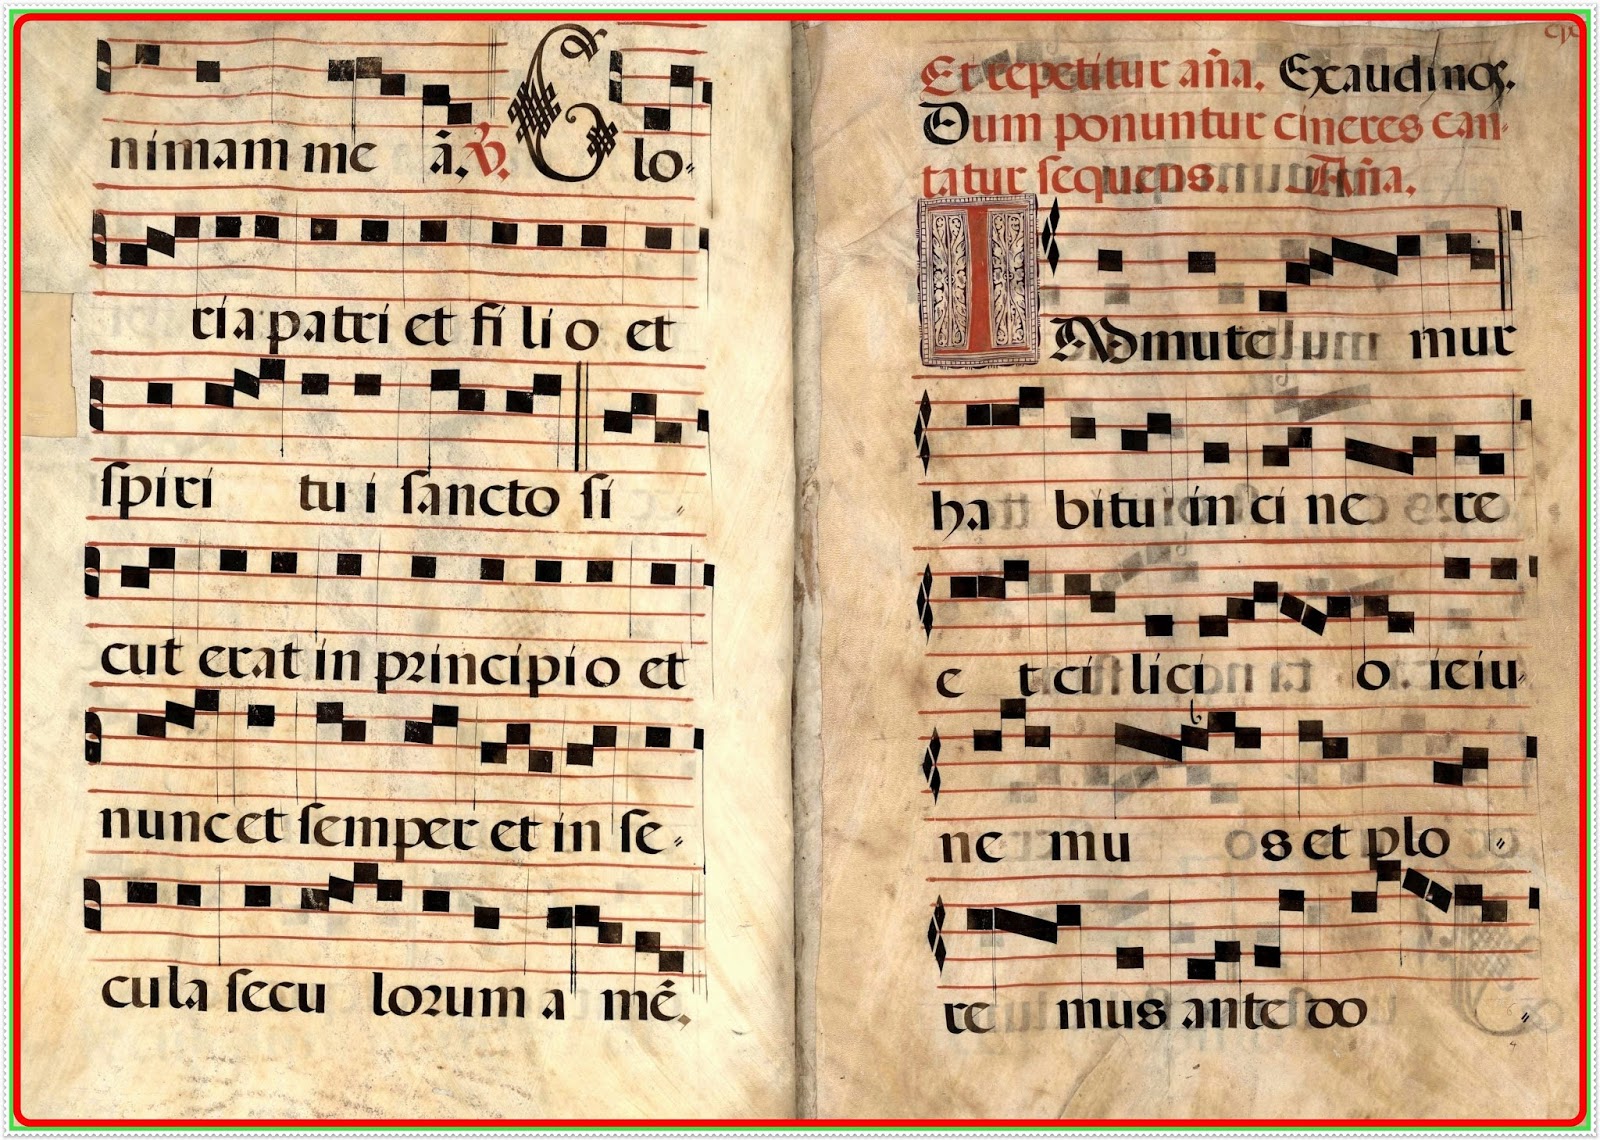 nimam me ā. V. Glo-
ria patri et filio et
spiri tui sancto si
cut erat in principio et
nunc et semper et in se-
cula seculorum a mē.
Et repetitur aña. Exaudi nos.
Dum ponuntur cineres can-
tatur sequens. Aña.
IMmutemur
habitu in cinere
et cilicio ieiu-
nemus et plo
remus ante do